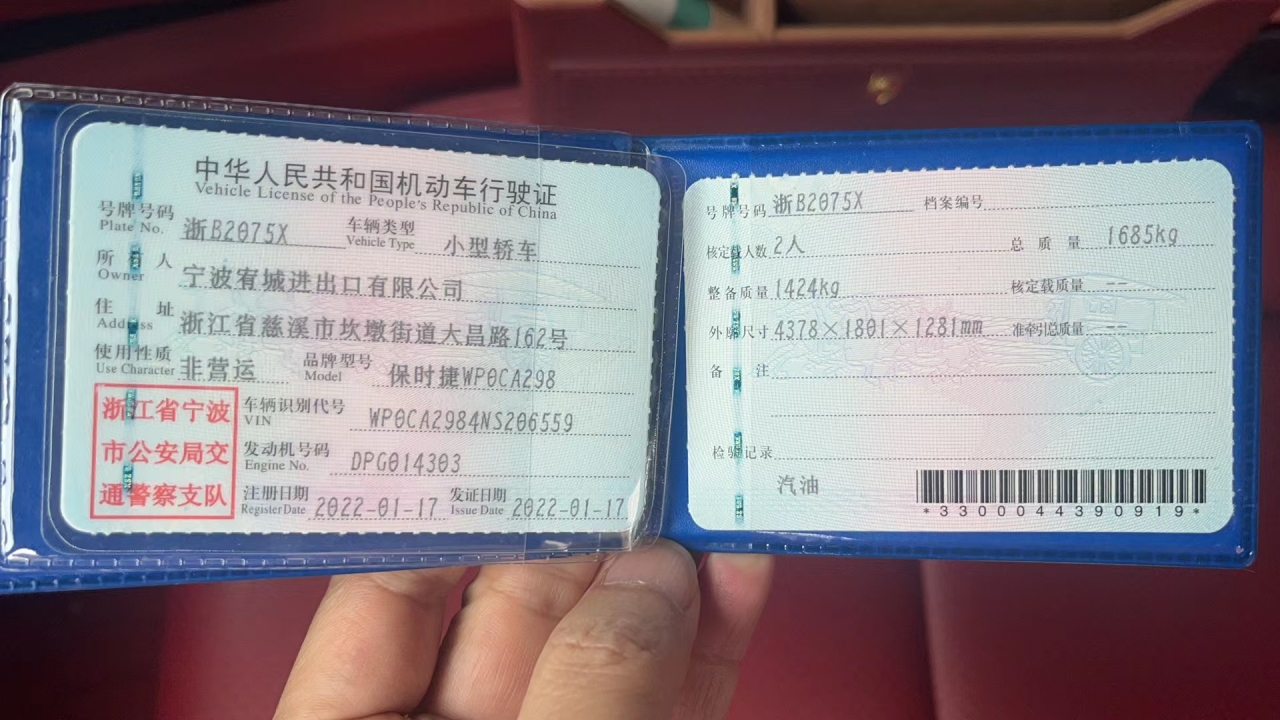 中华人民共和国机动车行驶证
Vehicle License of the People's Republic of China
号牌号码 浙B2075X 车辆类型 小型轿车
Plate No. Vehicle Type
所有人 宁波宥城进出口有限公司
Owner
住址 浙江省慈溪市坎墩街道大昌路162号
Address
使用性质 非营运 品牌型号 保时捷WP0CA298
Use Character Model
浙江省宁波
市公安局交
通警察支队
车辆识别代号 WP0CA2984NS206559
VIN
发动机号码 DPG014303
Engine No.
注册日期 2022-01-17 发证日期 2022-01-17
Register Date Issue Date
号牌号码 浙B2075X 档案编号
核定载人数 2人 总质量 1685kg
整备质量 1424kg 核定载质量 --
外廓尺寸 4378×1801×1281mm 准牵引总质量 --
备注
检验记录
汽油
*3300044390919*